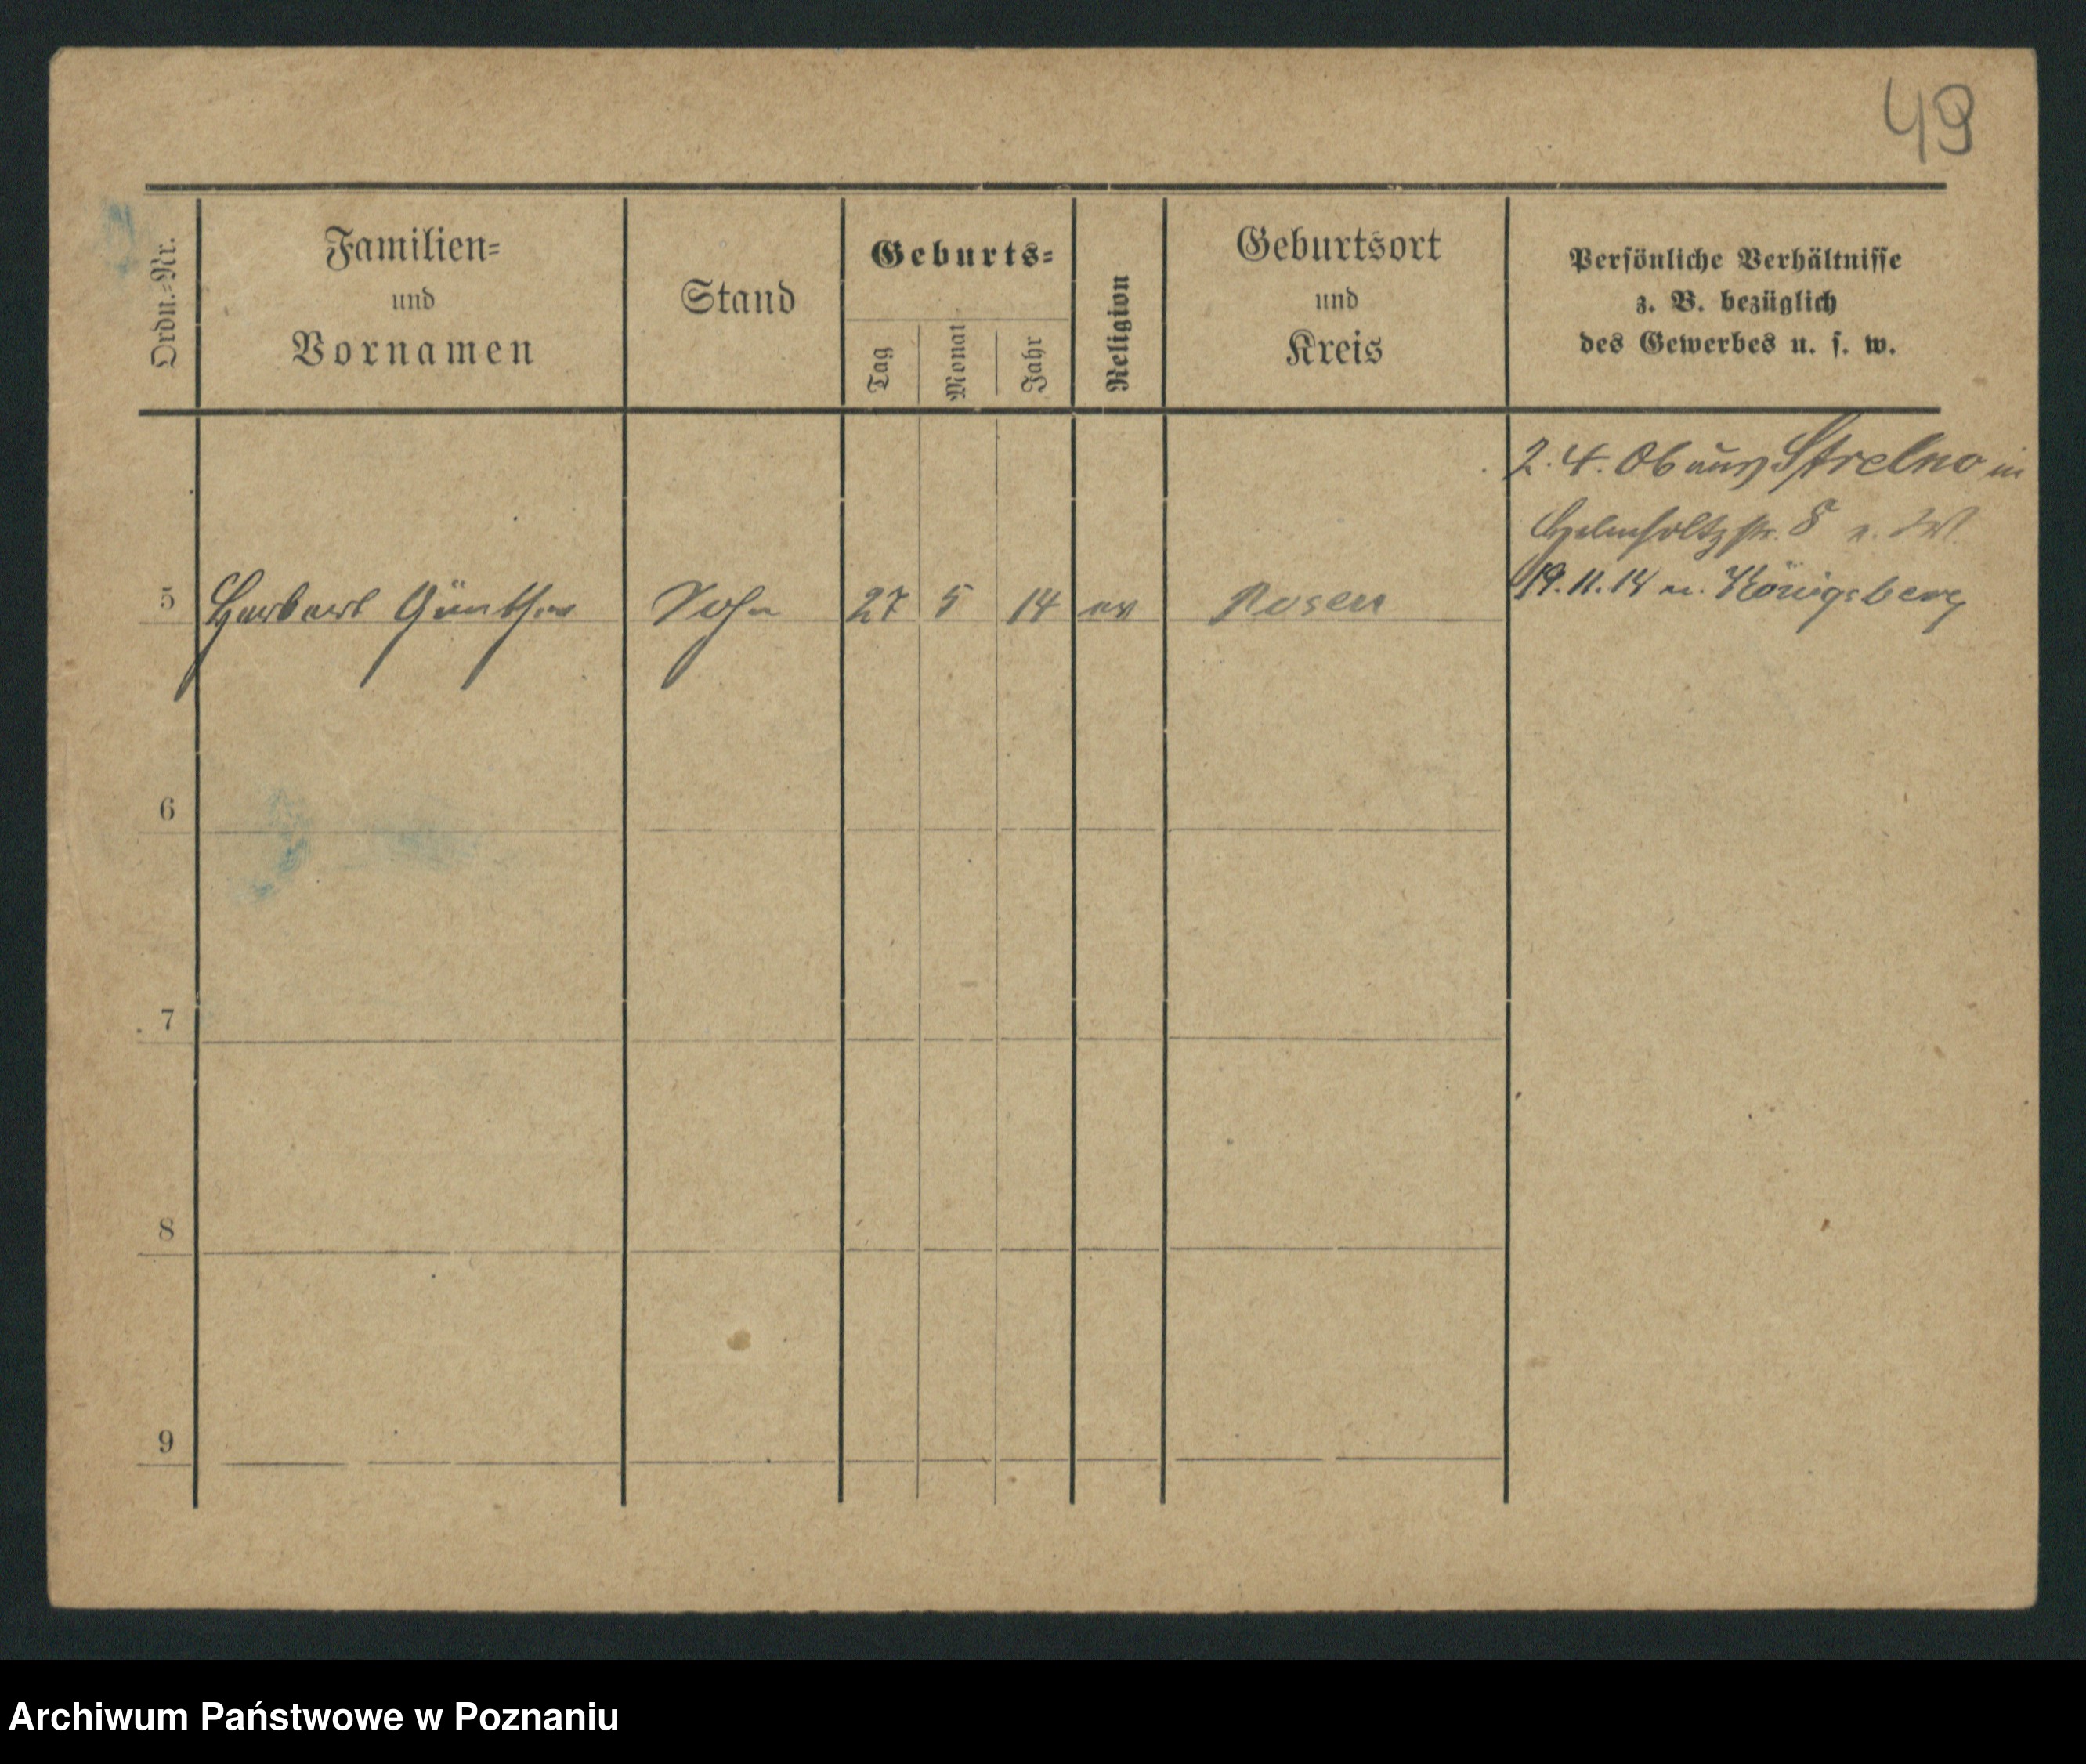 49
Ordn.-Nr.
Familien=
und
Vornamen
Stand
Geburts=
Tag
Monat
Jahr
Religion
Geburtsort
und
Kreis
Persönliche Verhältnisse
z. B. bezüglich
des Gewerbes u. s. w.
2. 4. 06 aus Strelno in
Helmholtzstr. 8
19. 11. 14 n. Königsberg
5 Herbert Günther Sohn 27 5 14 ev Posen
6
7
8
9
Archiwum Państwowe w Poznaniu